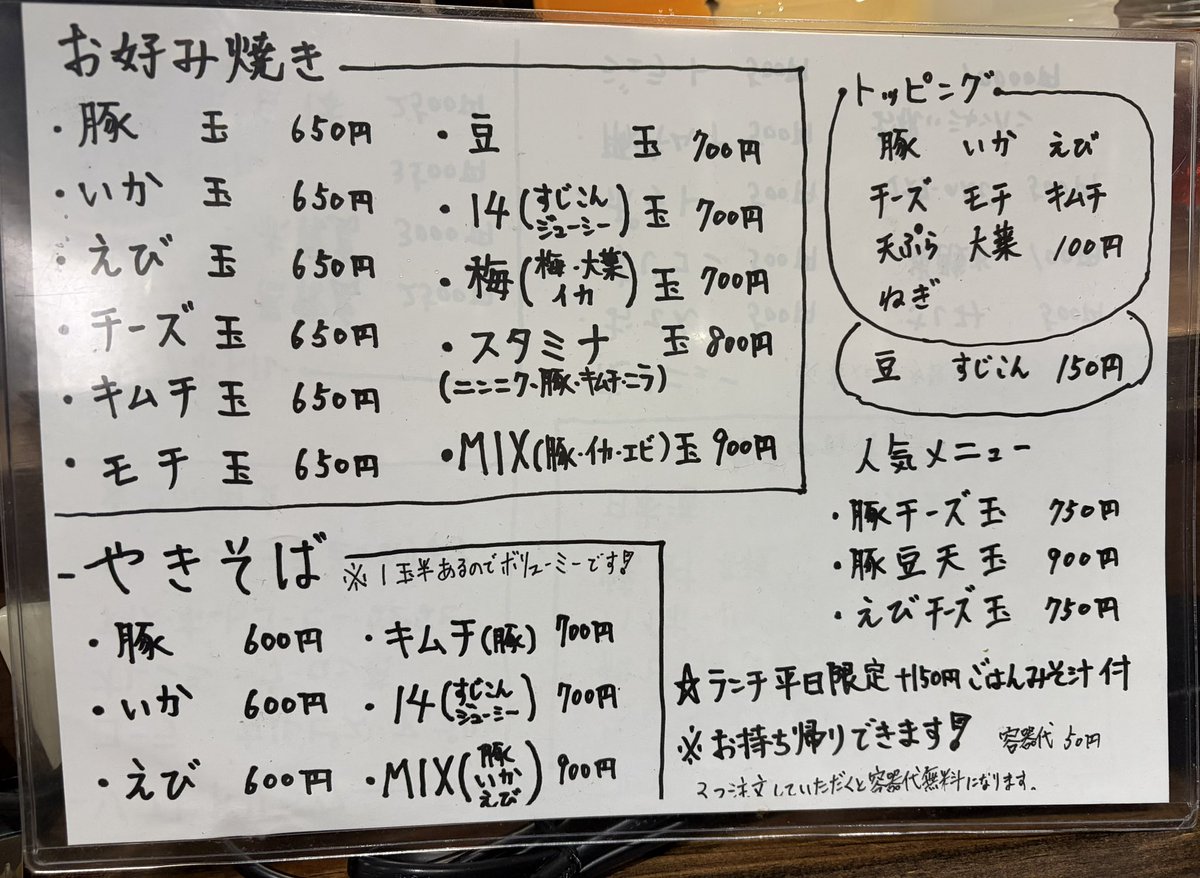 お好み焼き
・豚 玉 650円
・いか 玉 650円
・えび 玉 650円
・チーズ 玉 650円
・キムチ 玉 650円
・モチ 玉 650円
・豆 玉 700円
・14(すじこん ジューシー)玉 700円
・梅(梅・大葉 イカ)玉 700円
・スタミナ 玉 800円
(ニンニク・豚・キムチ・ニラ)
・MIX(豚・イカ・エビ)玉 900円
トッピング
豚 いか えび
チーズ モチ キムチ
天ぷら 大葉 100円
ねぎ
豆 すじこん 150円
人気メニュー
・豚チーズ玉 750円
・豚豆天玉 900円
・えびチーズ玉 750円
やきそば ※1玉半あるのでボリューミーです!
・豚 600円
・いか 600円
・えび 600円
・キムチ(豚) 700円
・14(すじこん ジューシー) 700円
・MIX(豚 いか えび) 900円
☆ランチ平日限定 +150円 ごはんみそ汁付
※お持ち帰りできます! 容器代 50円
2つ注文していただくと容器代無料になります。